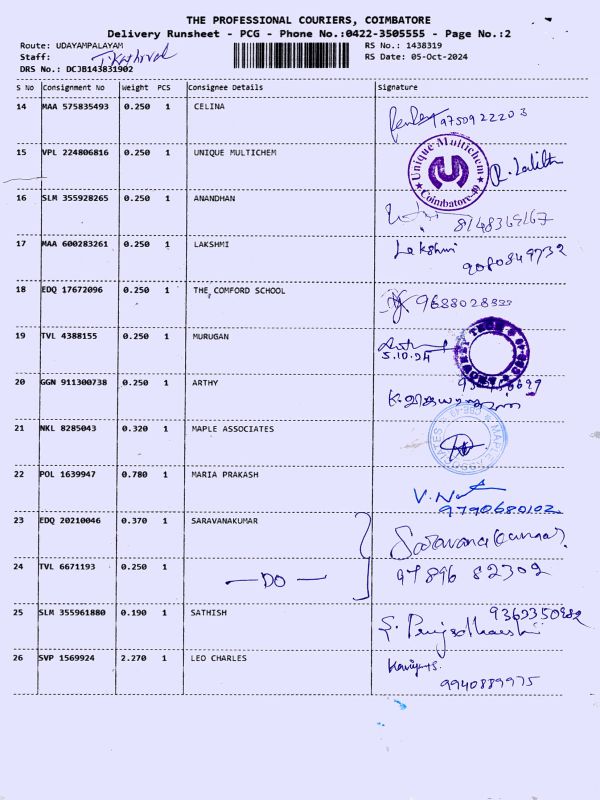 THE PROFESSIONAL COURIERS, COIMBATORE
Delivery Runsheet - PCG - Phone No.:0422-3505555 - Page No.:2
Route: UDAYAMPALAYAM RS No.: 1438319
Staff: RS Date: 05-Oct-2024
DRS No.: DCJB143831902
S No Consignment No Weight PCS Consignee Details Signature
14 MAA 575835493 0.250 1 CELINA 9750922203
15 VPL 224806816 0.250 1 UNIQUE MULTICHEM Unique Multichem Coimbatore-49 R. Lalith
16 SLM 355928265 0.250 1 ANANDHAN 8148369167
17 MAA 600283261 0.250 1 LAKSHMI Lakshmi
9080849732
18 EDQ 17672096 0.250 1 THE COMFORD SCHOOL 9688028322
19 TVL 4388155 0.250 1 MURUGAN
5.10.24
20 GGN 911300738 0.250 1 ARTHY
21 NKL 8285043 0.320 1 MAPLE ASSOCIATES MAPLE ASSOCIATES
22 POL 1639947 0.780 1 MARIA PRAKASH
9790680102
23 EDQ 20210046 0.370 1 SARAVANAKUMAR
24 TVL 6671193 0.250 1 — DO — 97896 82302
25 SLM 355961880 0.190 1 SATHISH
26 SVP 1569924 2.270 1 LEO CHARLES
9940889975